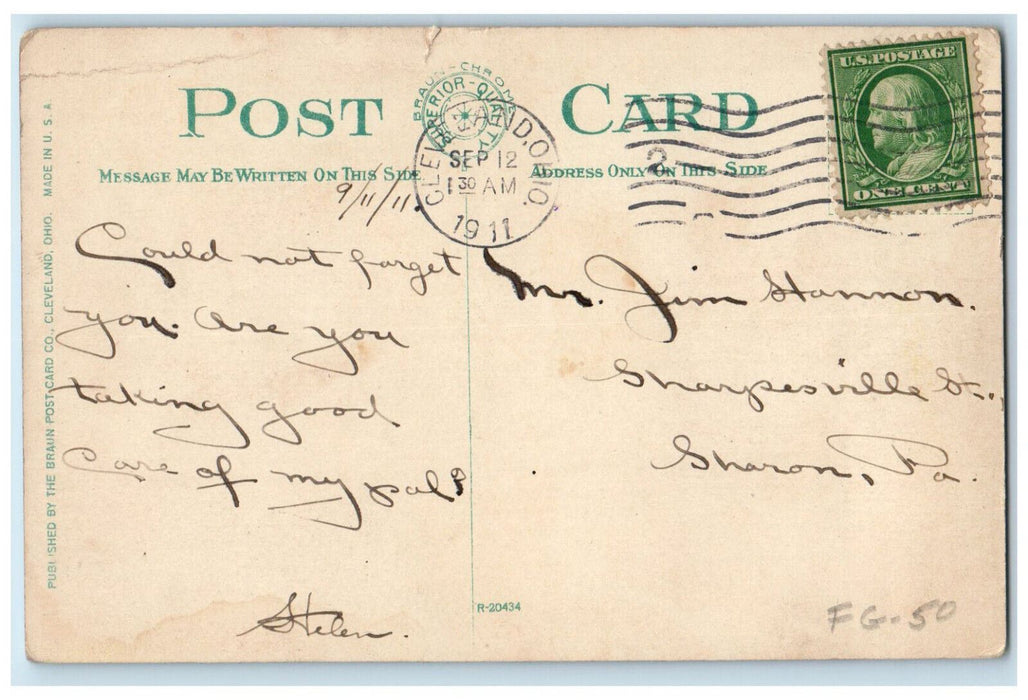 POST CARD
BRAUN-CHROME
SUPERIOR-QUALITY
U.S. POSTAGE
ONE CENT
CLEVELAND, OHIO.
SEP 12
1 30 AM
1911
2
MESSAGE MAY BE WRITTEN ON THIS SIDE
ADDRESS ONLY ON THIS SIDE
9/11/11.
Could not forget
you. Are you
taking good
care of my pal?
Helen.
Mr. Jim Hannon.
Sharpesville St.,
Sharon, Pa.
R-20434
FG-50
PUBLISHED BY THE BRAUN POST CARD CO., CLEVELAND, OHIO. MADE IN U. S. A